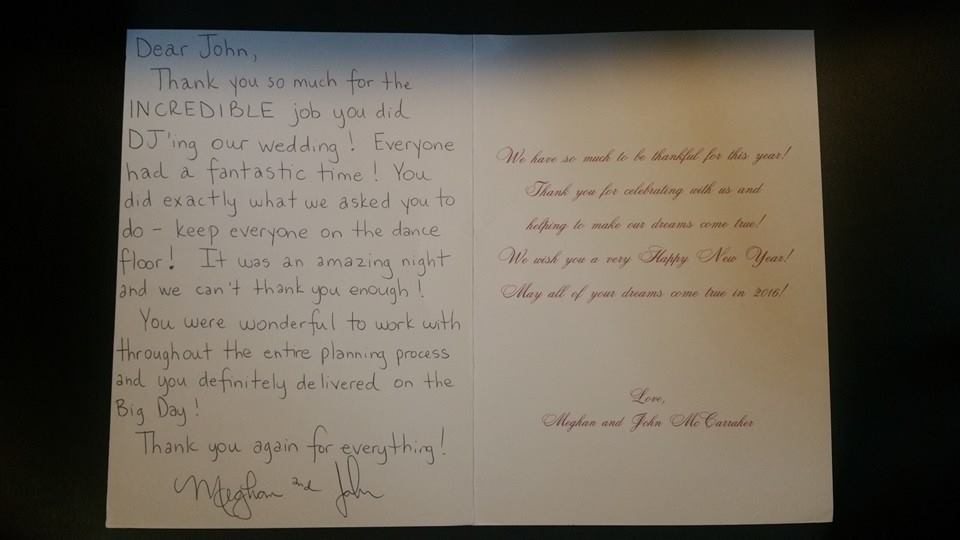 Dear John,
Thank you so much for the
INCREDIBLE job you did
DJ'ing our wedding! Everyone
had a fantastic time! You
did exactly what we asked you to
do - keep everyone on the dance
floor! It was an amazing night
and we can't thank you enough!
You were wonderful to work with
throughout the entire planning process
and you definitely delivered on the
Big Day!
Thank you again for everything!
Meghan and John
We have so much to be thankful for this year!
Thank you for celebrating with us and
helping to make our dreams come true!
We wish you a very Happy New Year!
May all of your dreams come true in 2016!
Love,
Meghan and John McCarraher